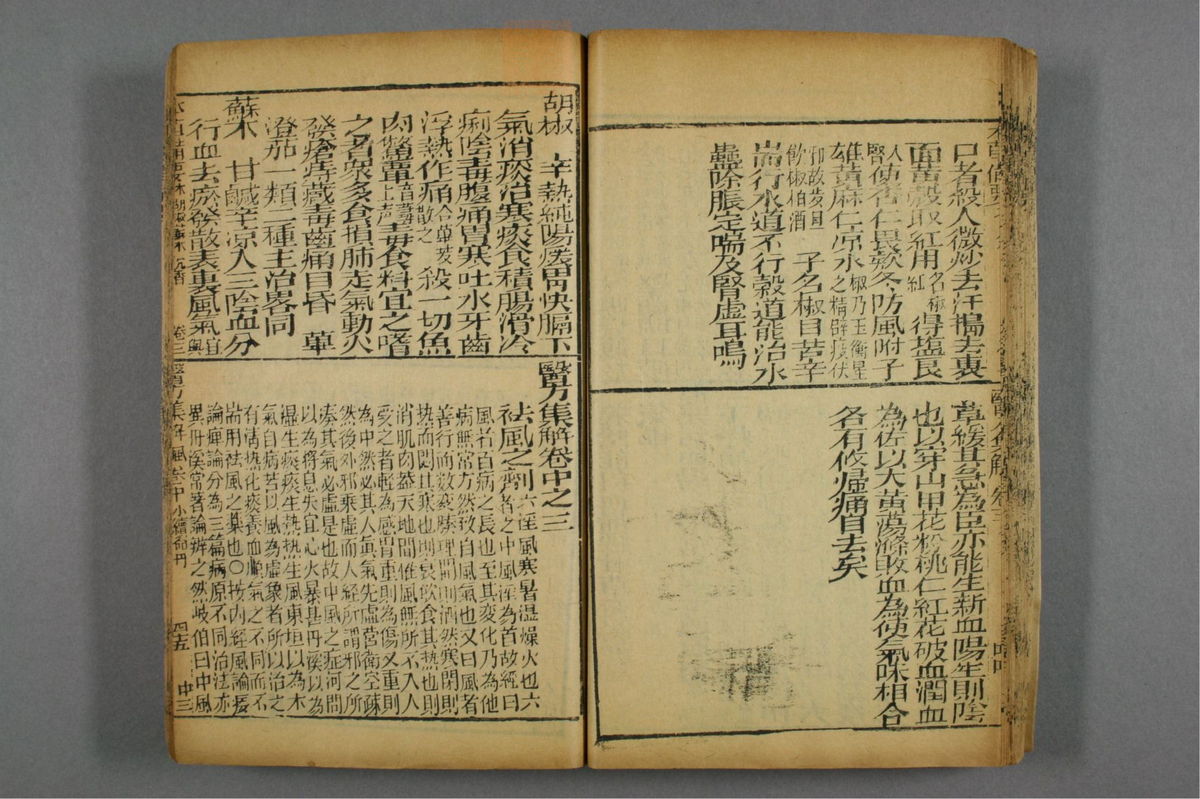 口者殺人微炒去汗搗去裏
面黃殼取紅用名椒紅得塩良
人腎使杏仁畏欵冬防風附子
雄黃麻仁凉水椒乃玉衡星之精辟疫伏
邪故歲旦飲椒柏酒 子名椒目苦辛
耑行水道不行穀道能治水
蠱除脹定喘及腎虛耳鳴
草緩其急為臣亦能生新血陽生則陰
也以穿山甲花粉桃仁紅花破血潤血
為佐以大黃蕩滌敗血為使氣味相合
各有攸歸痛自去矣
胡椒 辛熱純陽煖胃快膈下
氣消痰治寒痰食積腸滑冷
痢陰毒腹痛胃寒吐水牙齒
浮熱作痛合蓽茇散之 殺一切魚
肉鱉蕈毒食料宜之嗜
之者衆多食損肺走氣動火
發瘡痔臟毒齒痛目昏 蓽
澄茄一類二種主治畧同
蘇木 甘鹹辛凉入三陰血分
行血去瘀發散表裏風氣宜與
卷三
醫方集解卷中之三
祛風之劑 六淫風寒暑湿燥火也六
者之中風淫為首故經曰
風者百病之長也至其變化乃為他
病無常方然致自風氣也又曰風者
善行而數變腠理開則洒然寒閉則
热而悶其寒也則衰飲食其热也則
消肌肉蓋天地間惟風無所不入人
受之者輕為感冒重則為傷又重則
為中然必其人真氣先虛營衛空疎
然後外邪乘虛而人経所謂邪之所
奏其氣必虛是也故中風之症河間
以為將息失宜心火暴甚丹溪以為
湿生痰痰生热热生風東垣以為木
氣自病若以風為虛象者所以治之
有清热化痰養血順氣之不同而不
耑用祛風之藥也○按内經風論痿
論痺論分為三篇病原不同治法亦
異丹溪常著論辨之然岐伯曰中風
醫方集解 風 卷中 小續命 四十五 中三